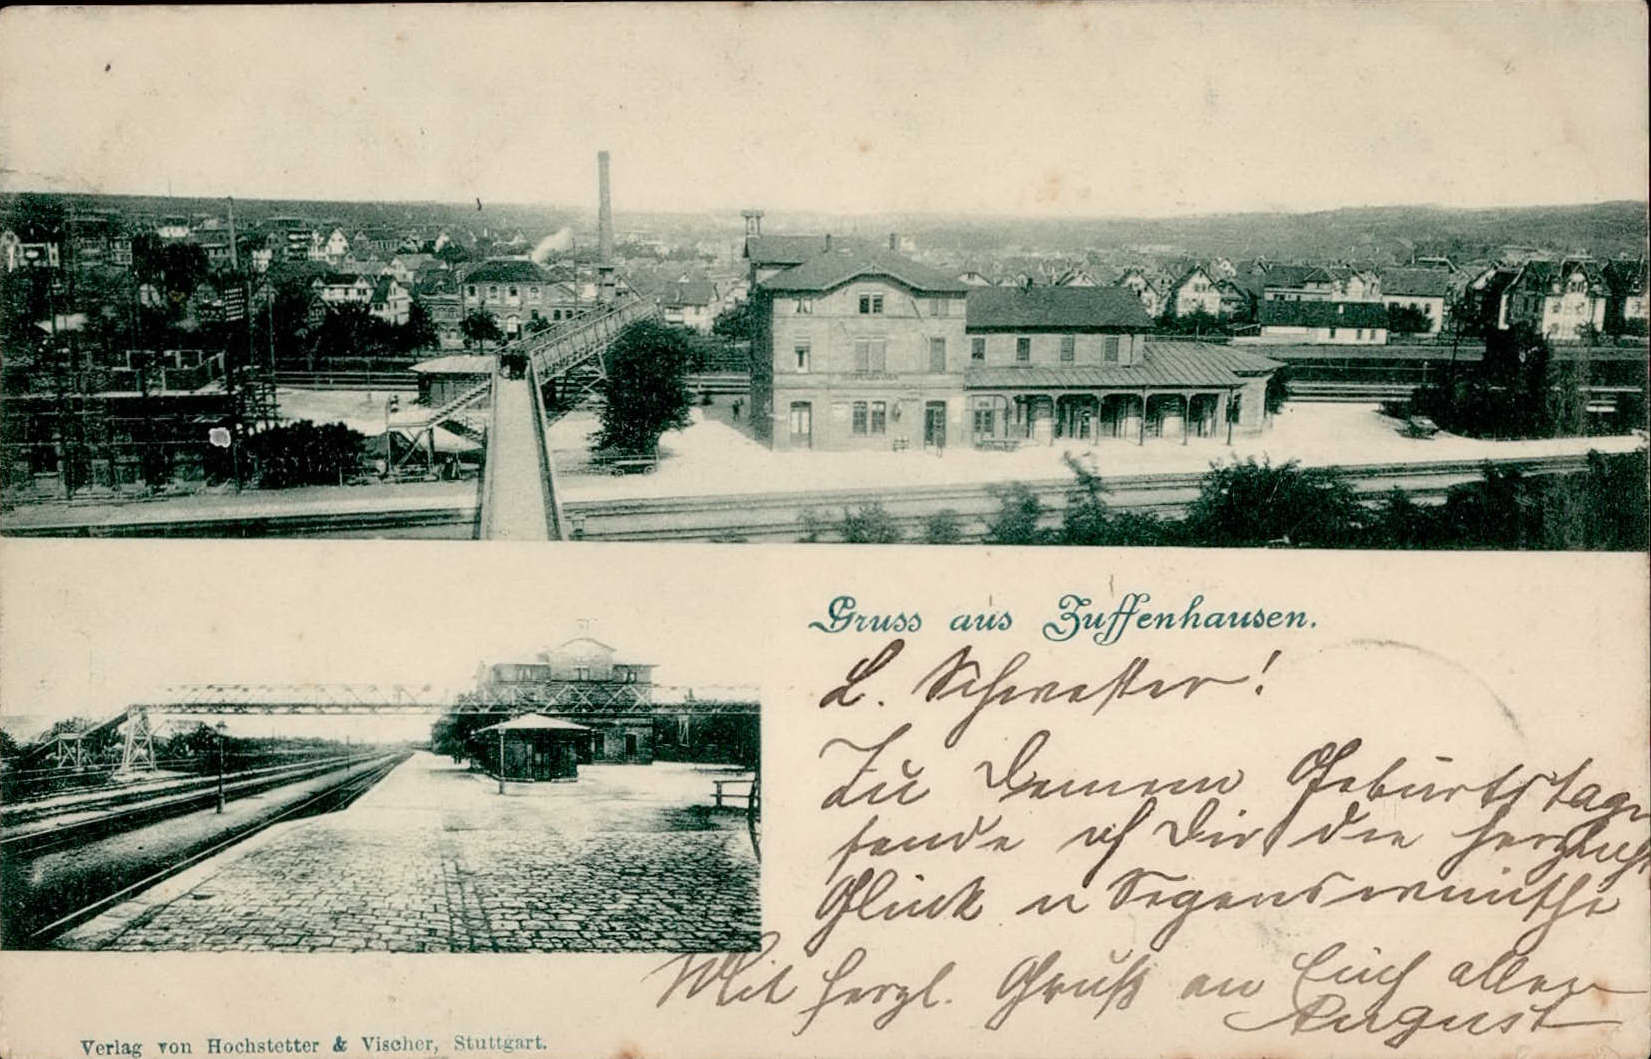 Gruss aus Zuffenhausen.
L. Schwester!
Zu Deinem Geburtstage
sende ich Dir die herzlichst
Glück u Segenswünsche
Mit herzl. Gruß an Euch allen
August
Verlag von Hochstetter & Vischer, Stuttgart.